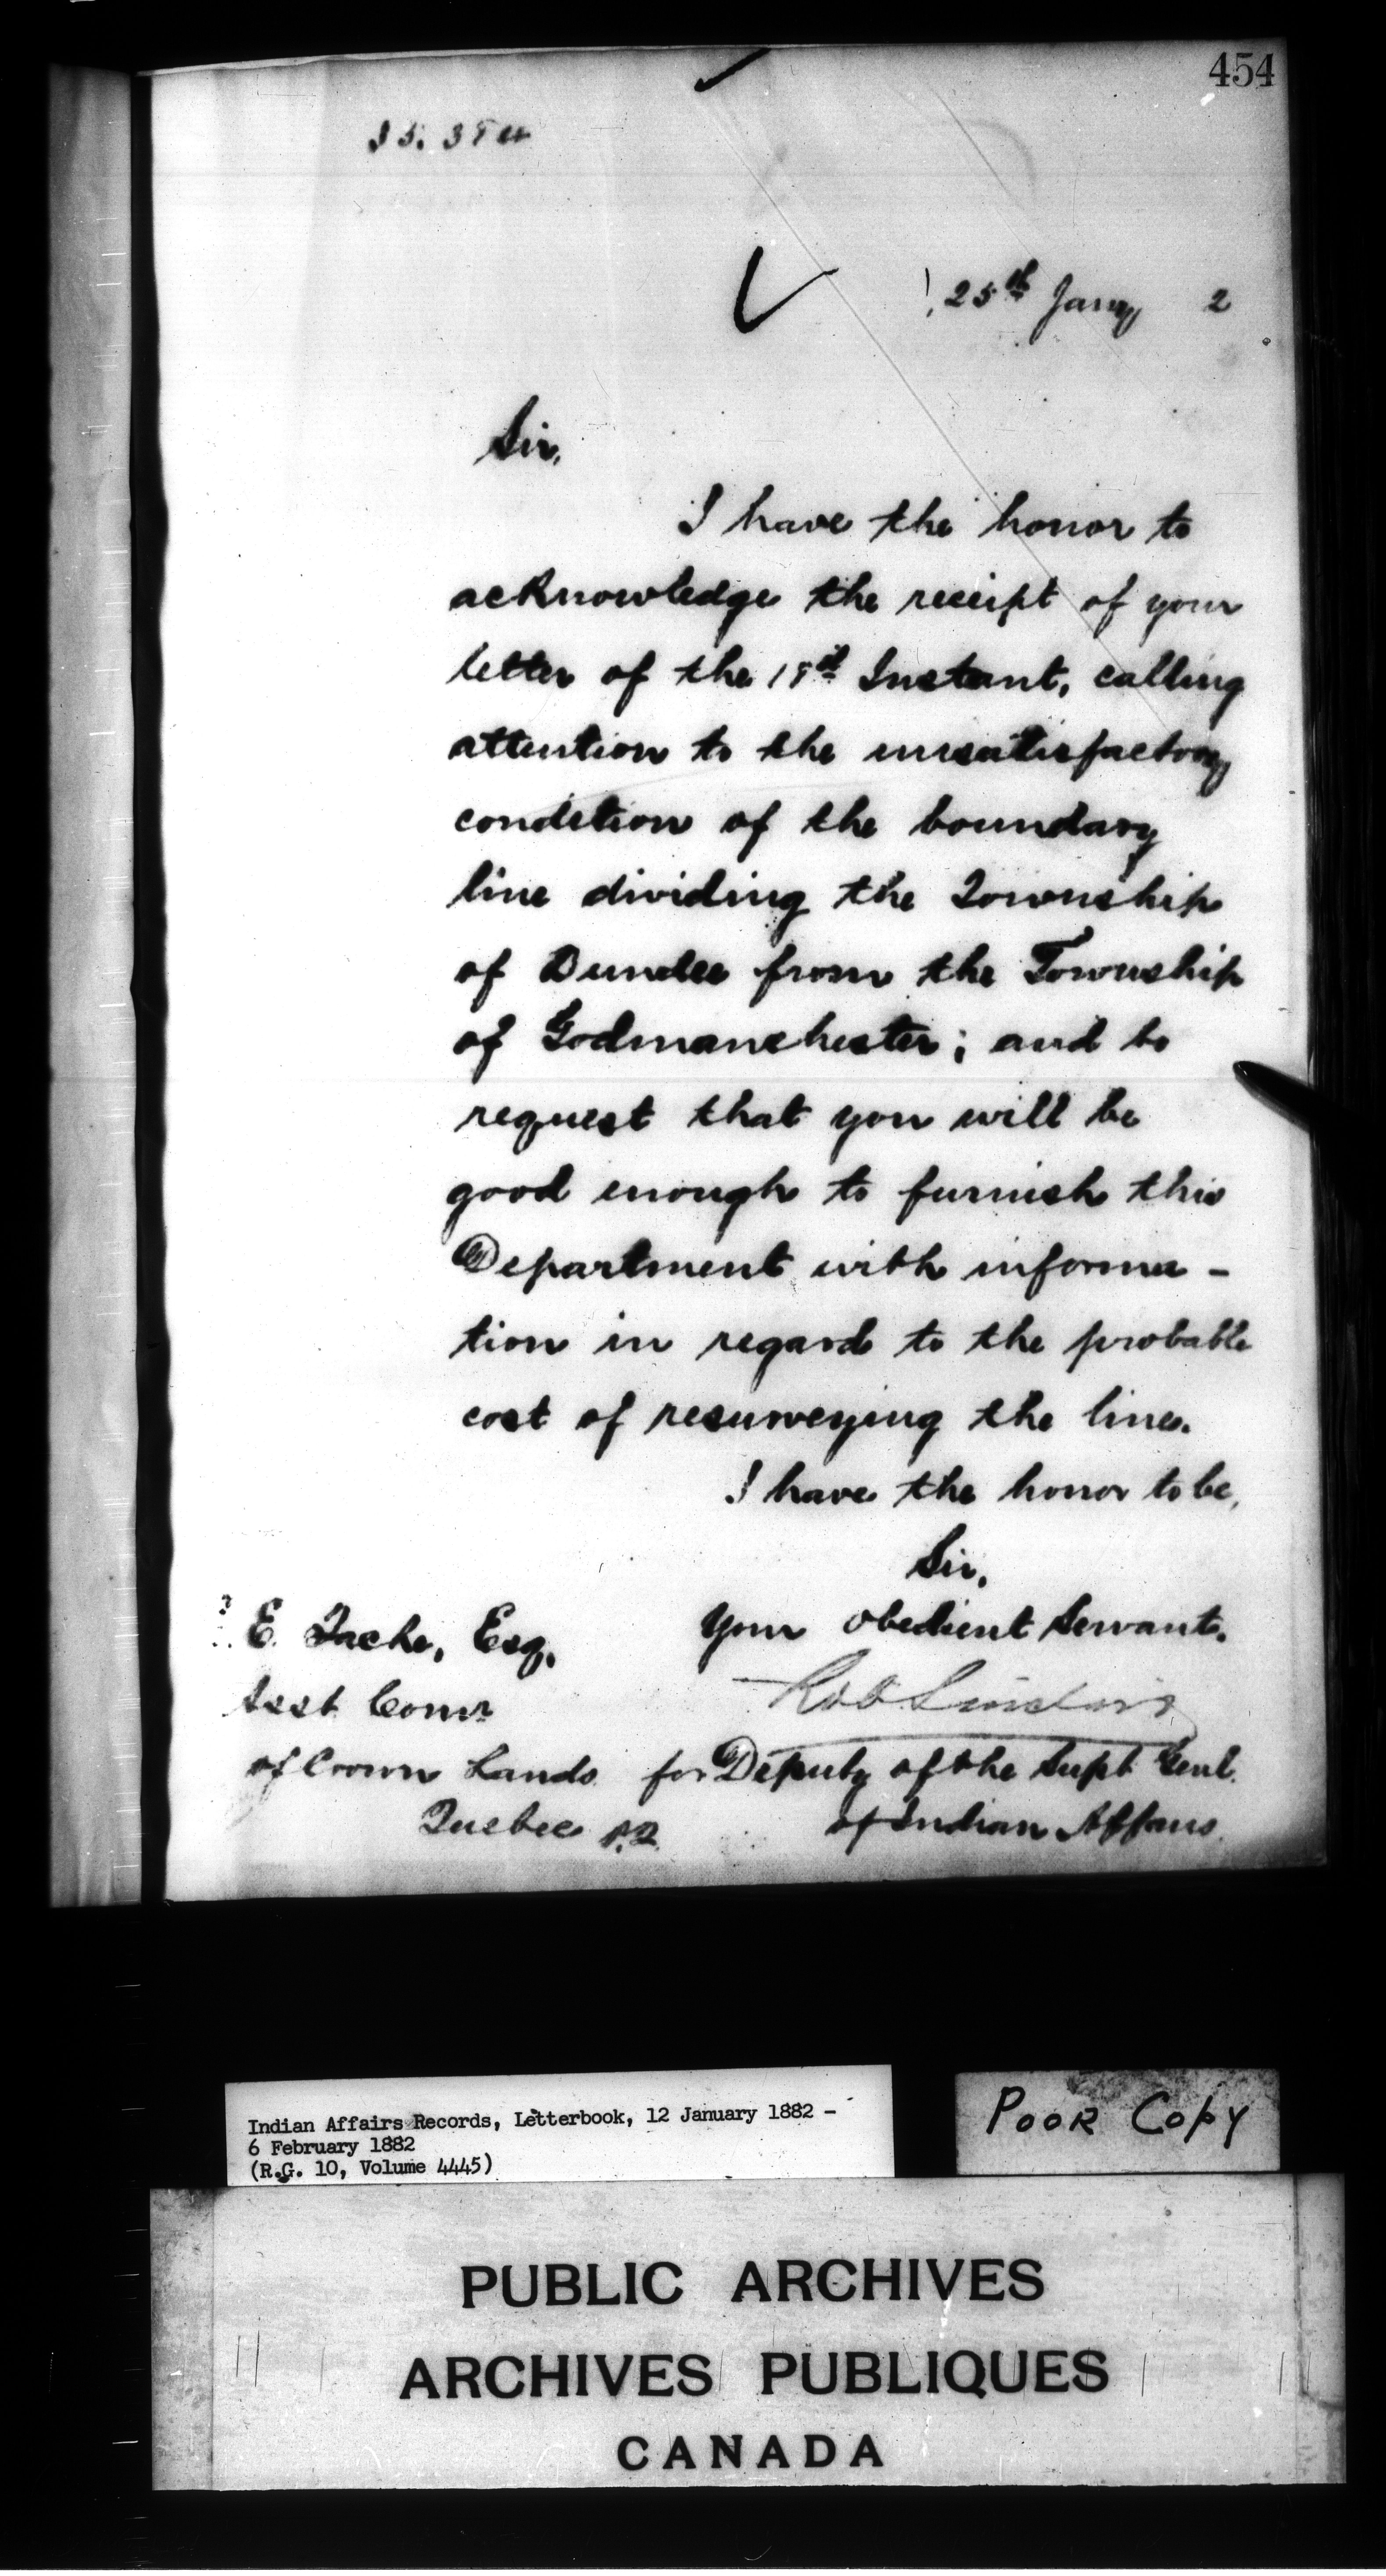 454
25th Jany 2
Sir,
I have the honor to
acknowledge the receipt of your
letter of the 18th Instant, calling
attention to the unsatisfactory
condition of the boundary
line dividing the Township
of Dundee from the Township
of Godmanchester; and to
request that you will be
good enough to furnish this
Department with informa-
tion in regard to the probable
cost of resurveying the line.
I have the honor to be,
Sir,
Your obedient servant.
E. Tache, Esq.
Asst Comr
of Crown Lands
Quebec P.Q.
Rob Sinclair
for Deputy of the Supt Genl.
of Indian Affairs
Indian Affairs Records, Letterbook, 12 January 1882 -
6 February 1882
(R.G. 10, Volume 4445)
POOR COPY
PUBLIC ARCHIVES
ARCHIVES PUBLIQUES
CANADA